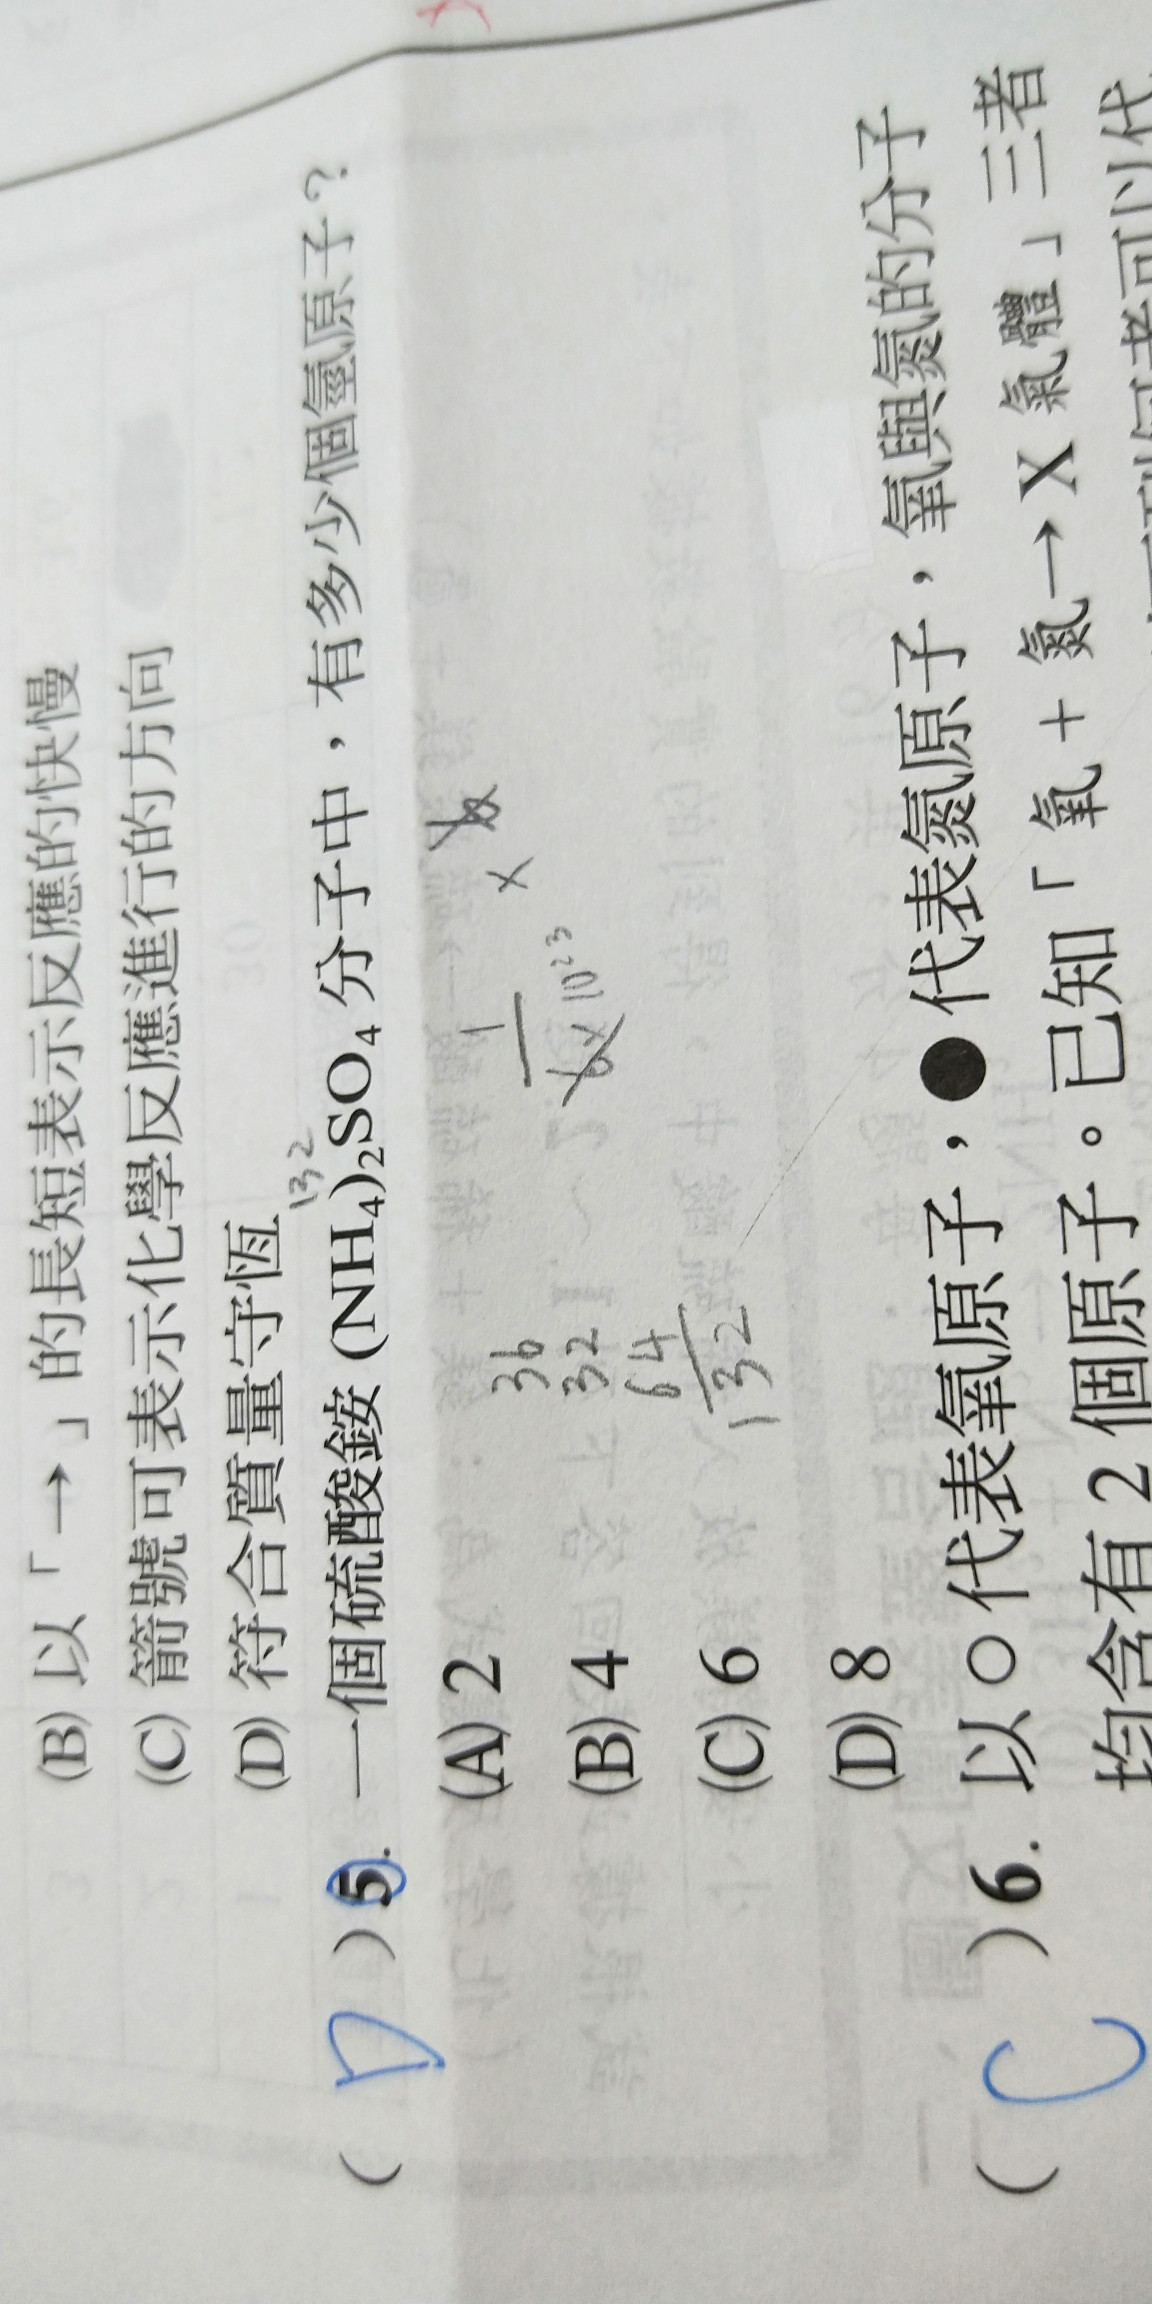 (B) 以「→」的長短表示反應的快慢
(C) 箭號可表示化學反應進行的方向
(D) 符合質量守恆
132
( D ) 5. 一個硫酸銨 (NH₄)₂SO₄ 分子中，有多少個氫原子？
(A) 2
(B) 4
(C) 6
(D) 8
36
32
64
132
1
6×10²³
×
( C ) 6. 以○代表氧原子，●代表氮原子，氧與氮的分子
均含有 2 個原子。已知「氧 + 氮→X 氣體」三者